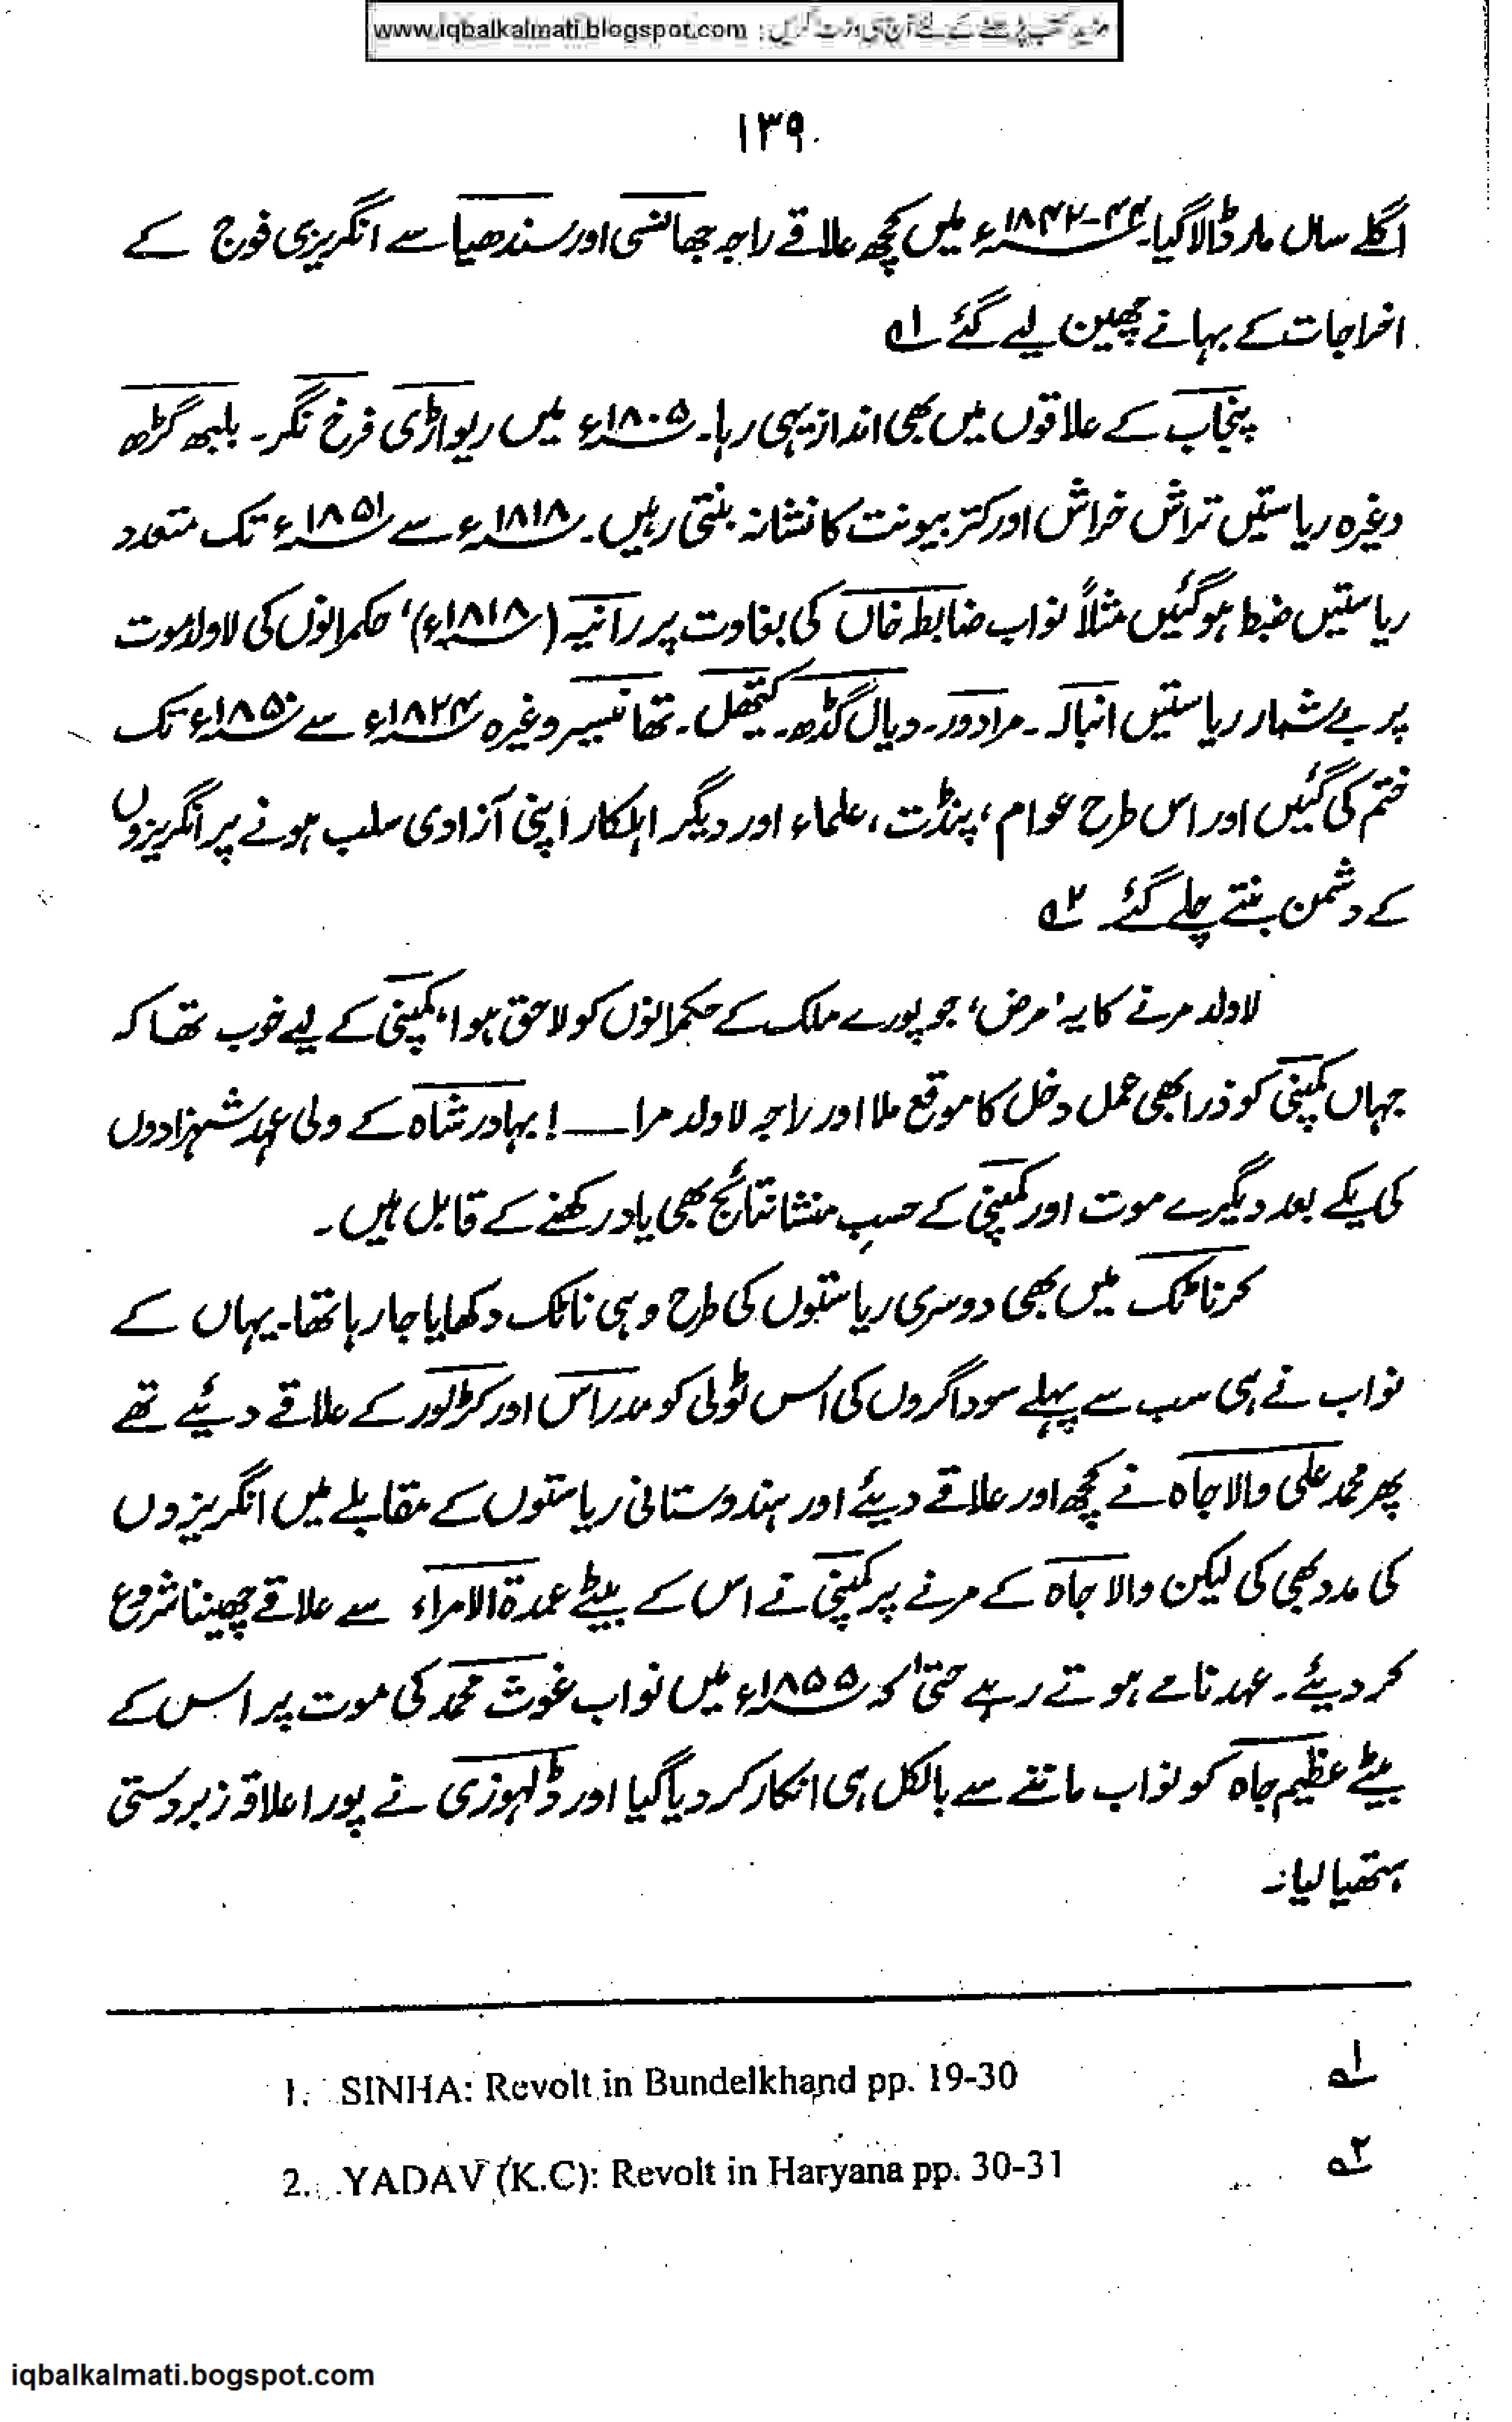 www.iqbalkalmati.blogspot.com : مزید کتب پڑھنے کے لئے آج ہی وزٹ کریں
۱۳۹
اگلے سال مار ڈالا گیا۔ ۴۴-۱۸۴۲ء میں کچھ علاقے راجہ جھانسی اور سندھیا سے انگریزی فوج کے
اخراجات کے بہانے چھین لیے گئے ۱؎
پنجاب کے علاقوں میں بھی انداز یہی رہا۔ ۱۸۰۵ء میں ریواڑی فرخ نگر۔ بلبھ گڑھ
وغیرہ ریاستیں تراش خراش اور کتر بیونت کا نشانہ بنتی رہیں۔ ۱۸۱۸ء سے ۱۸۵۱ء تک متعدد
ریاستیں ضبط ہوگئیں مثلاً نواب ضابطہ خاں کی بغاوت پر رانیہ (۱۸۱۸ء)، حکمرانوں کی لاولد موت
پر بے شمار ریاستیں انبالہ۔ مرادور۔ دیال گڈھ۔ کیتھل۔ تھانیسر وغیرہ ۱۸۲۴ء سے ۱۸۵۰ء تک
ختم کی گئیں اور اس طرح عوام، پنڈت، علماء اور دیگر اہلکار اپنی آزادی سلب ہونے پر انگریزوں
کے دشمن بنتے چلے گئے۔ ۲؎
لاولد مرنے کا یہ 'مرض' جو پورے ملک کے حکمرانوں کو لاحق ہوا، کمپنی کے لیے خوب تھا کہ
جہاں کمپنی کو ذرا بھی عمل دخل کا موقع ملا اور راجہ لاولد مرا ——! بہادر شاہ کے ولی عہد شہزادوں
کی یکے بعد دیگرے موت اور کمپنی کے حسبِ منشا نتائج بھی یاد رکھنے کے قابل ہیں۔
کرناٹک میں بھی دوسری ریاستوں کی طرح وہی ناٹک دکھایا جا رہا تھا۔ یہاں کے
نواب نے ہی سب سے پہلے سوداگروں کی اس ٹولی کو مدراس اور کڑلور کے علاقے دیئے تھے
پھر محمد علی والا جاہ نے کچھ اور علاقے دیئے اور ہندوستانی ریاستوں کے مقابلے میں انگریزوں
کی مدد بھی کی لیکن والا جاہ کے مرنے پر کمپنی نے اس کے بیٹے عمدۃ الامراء سے علاقے چھیننا شروع
کر دیئے۔ عہد نامے ہوتے رہے حتیٰ کہ ۱۸۵۵ء میں نواب غوث محمد کی موت پر اس کے
بیٹے عظیم جاہ کو نواب ماننے سے بالکل ہی انکار کر دیا گیا اور ڈلہوزی نے پورا علاقہ زبردستی
ہتھیا لیا۔
1. SINHA: Revolt in Bundelkhand pp. 19-30 ۱؎
2. YADAV (K.C): Revolt in Haryana pp. 30-31 ۲؎
iqbalkalmati.bogspot.com